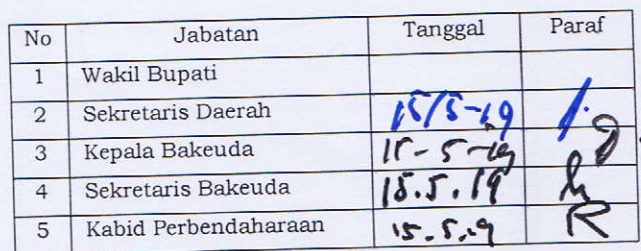 No Jabatan Tanggal Paraf
1 Wakil Bupati
2 Sekretaris Daerah 15/5-19
3 Kepala Bakeuda 15-5-19
4 Sekretaris Bakeuda 15.5.19
5 Kabid Perbendaharaan 15.5.19